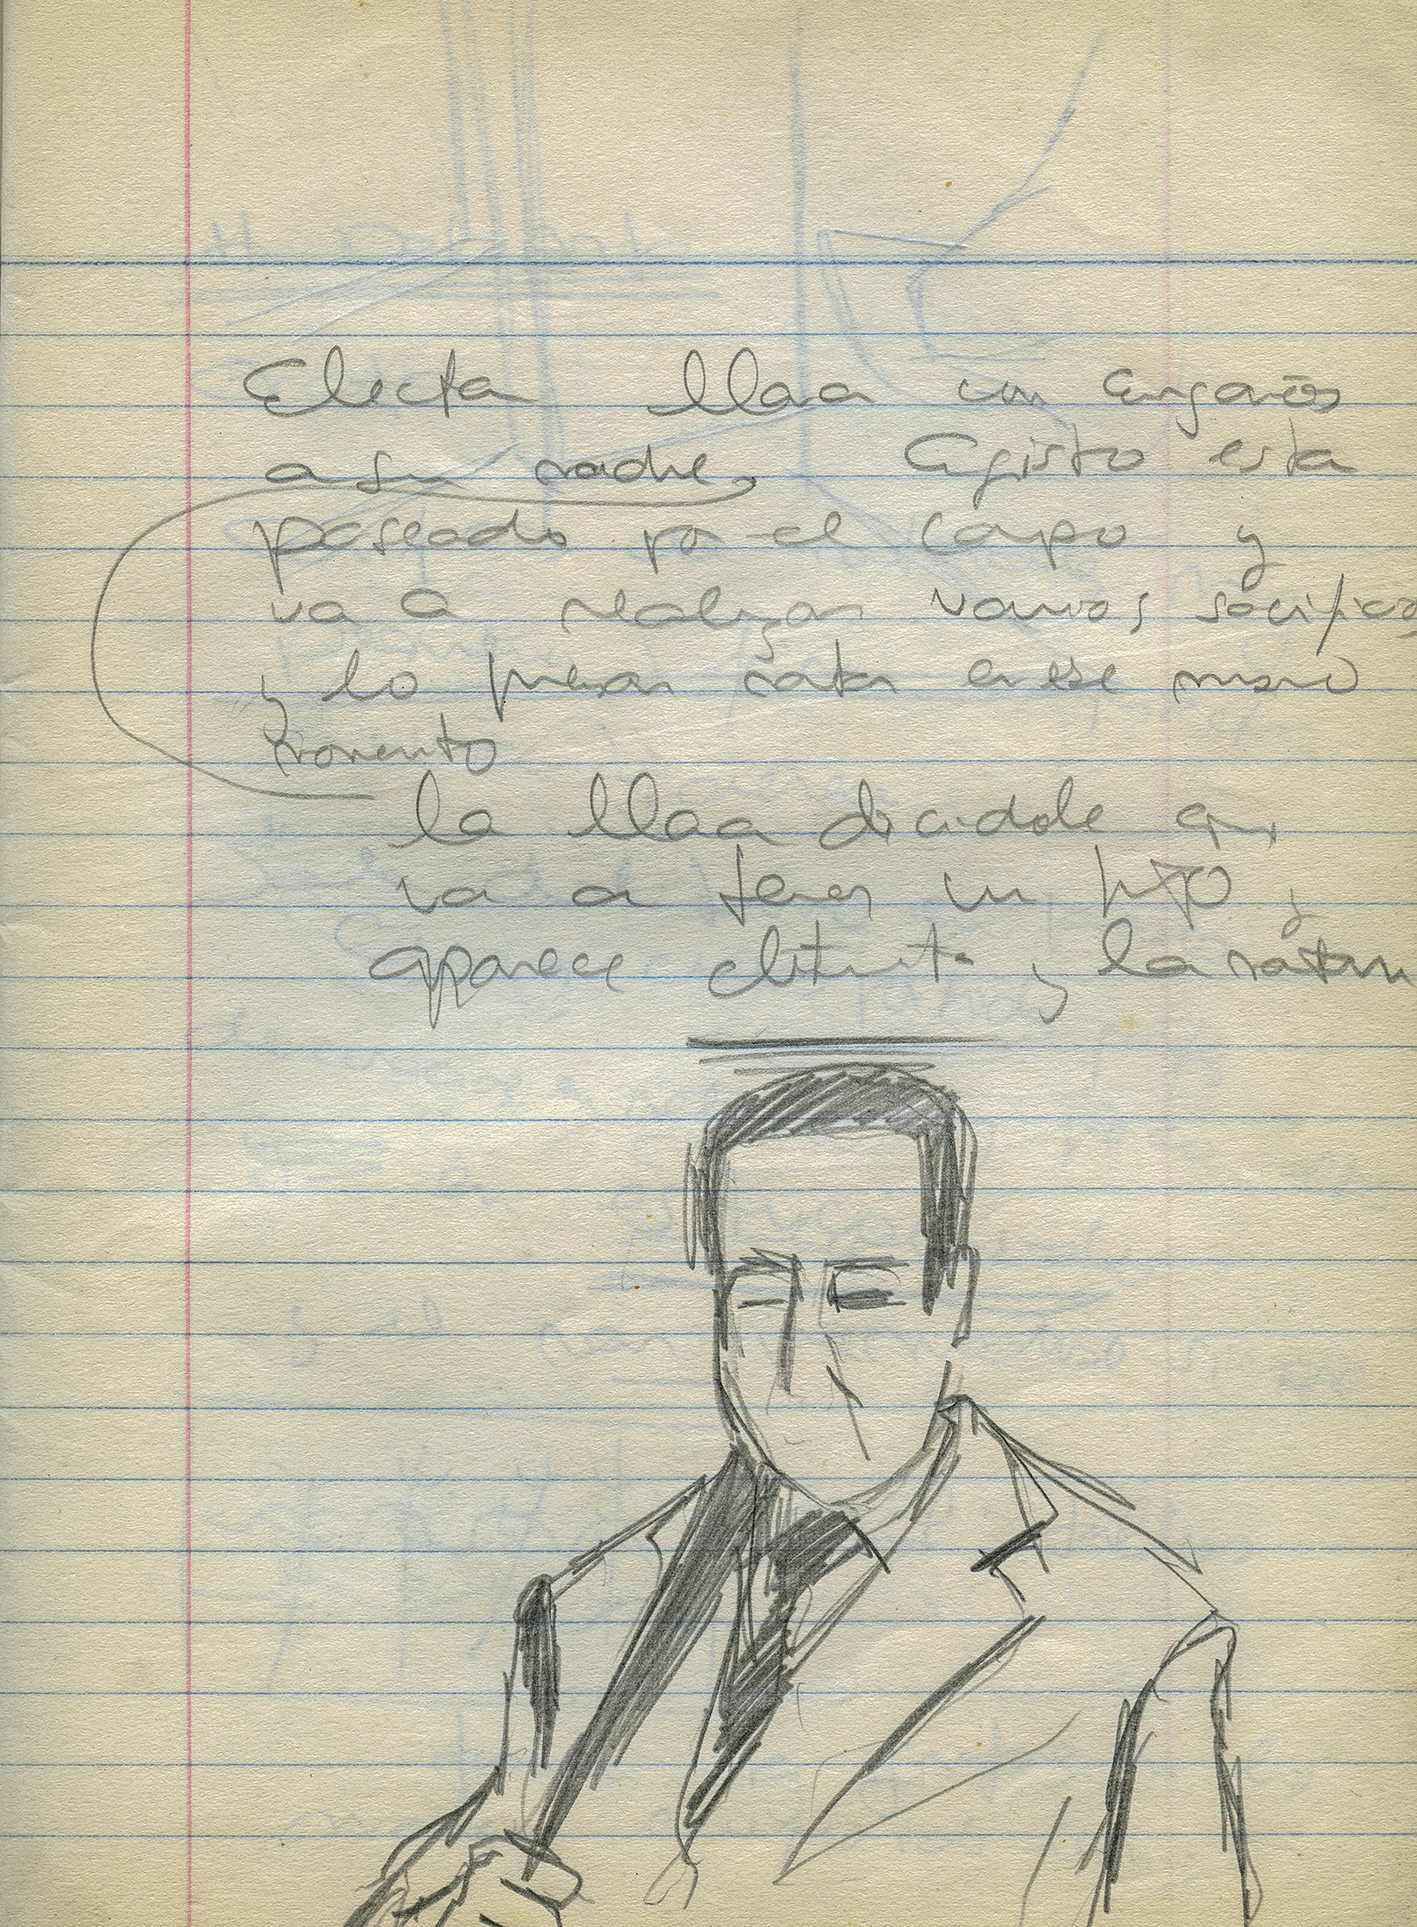 Electa llaa con engaños
a su madre, Egisto esta
paseado por el capo y
va a realizar varios sacificos
y lo piensan matar en ese mismo
momento
la llaa dicidole que
va a tener un hijo y
aparece y la matan